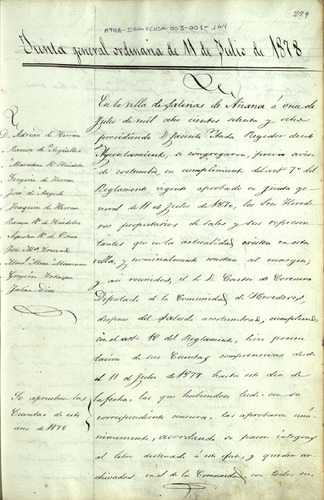 ATHA-DAH-FCHSA-003-001-164
279
Junta general ordinaria de 11 de Julio de 1878
En la villa de Salinas de Añana á once de
Julio de mil ocho cientos setenta y ocho
presidiendo D. Regidor de este
Ayuntamiento, se congregaron, previo aviso
de costumbre, en cumplimiento del artº 7º del
Reglamento vigente aprobado en junta ge-
neral de 11 de Julio de los Sres Herede-
ros propietarios de sales y sus represen-
tantes que en la actualidad existen en esta
villa, y nominalmente constan al margen;
y, asi reunidos, el Sr D. Castor de
Diputado de la Comunidad de Herederos,
despues del saludo acostumbrado, cumpliendo
con el artº 18 del Reglamento, hizo presen-
tacion de sus Cuentas comprensivas desde
el 11 de Julio de 1877 hasta este dia de
la fecha, las que habiendose leido con su
correspondiente censura, las aprobaron uná-
nimemente, acordando se pasen integras
al libro destinado á su efecto, y queden ar-
chivadas en el de la Comunidad con todos su
D. Adrian de Herran
Ramon de
Gregorio de Herran
Jose de
Joaquin de Herran
Ramon
Gregorio
Julian Diaz
Se aprueban las
Cuentas de este
año de 1878